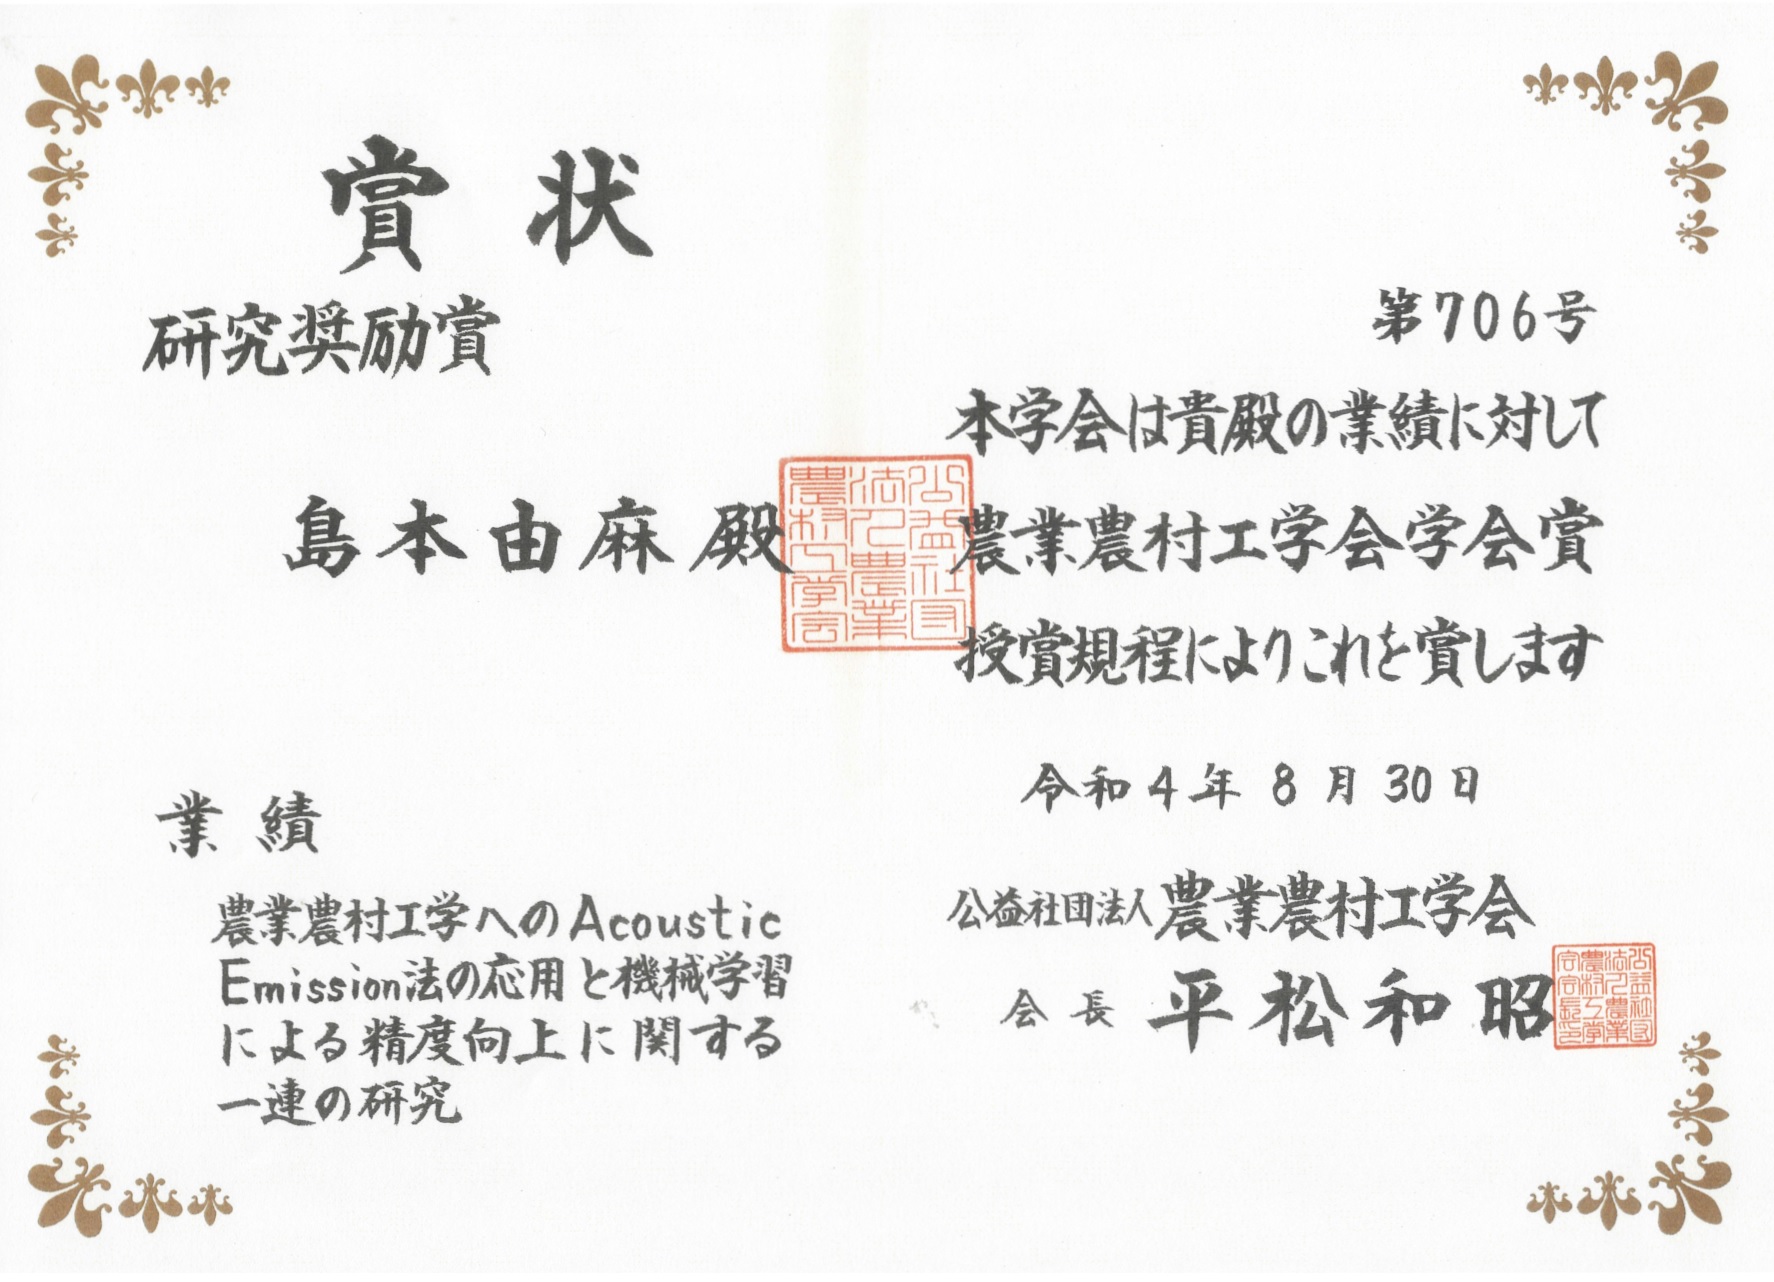 賞状
研究奨励賞
島本由麻殿
業績
農業農村工学へのAcoustic
Emission法の応用と機械学習
による精度向上に関する
一連の研究
第706号
本学会は貴殿の業績に対して
農業農村工学会学会賞
授賞規程によりこれを賞します
令和4年8月30日
公益社団法人農業農村工学会
会長 平松和昭
公益社団
法人農業
農村工学会
公益社団
法人農業
農村工学
会会長印